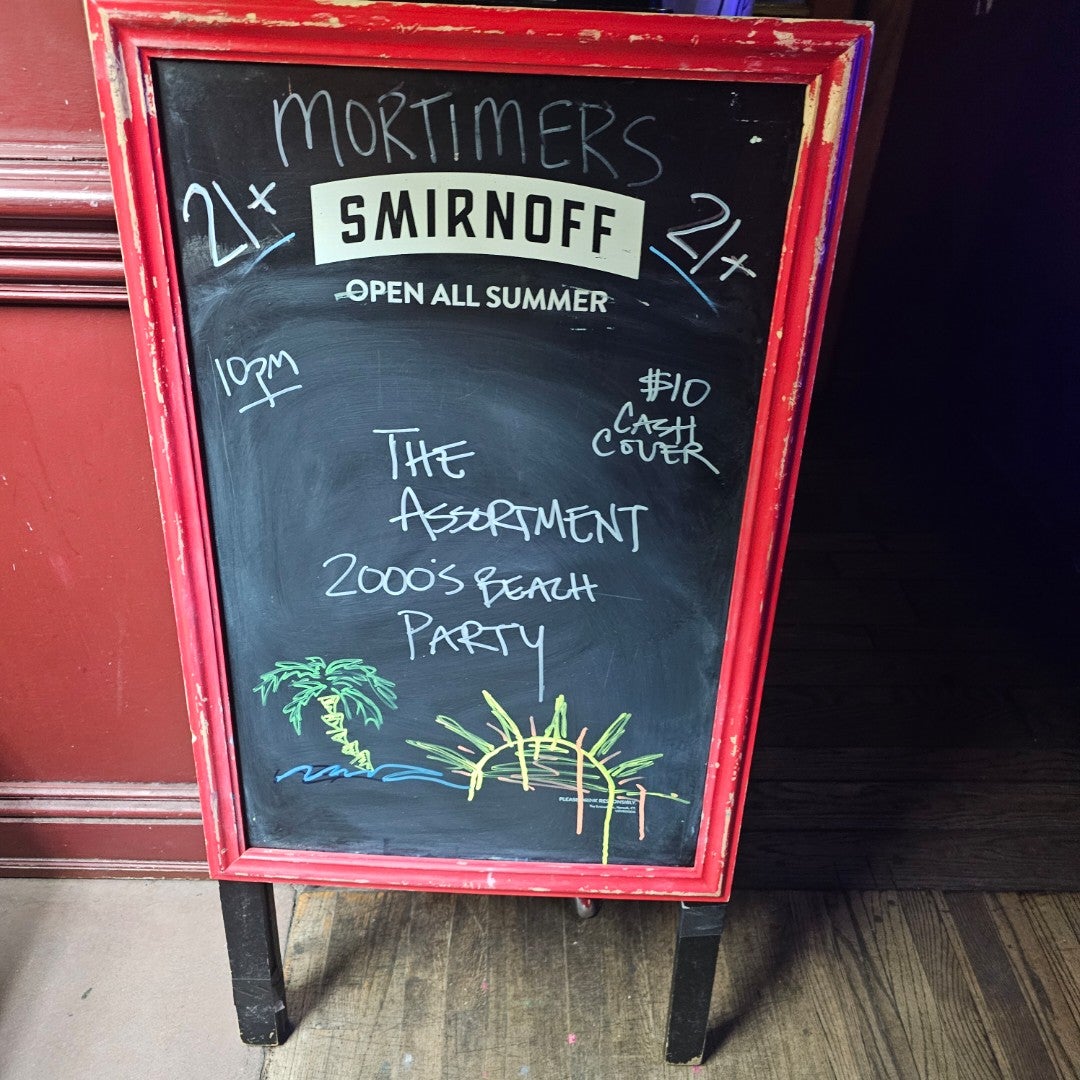 MORTIMERS
21+
SMIRNOFF
21+
OPEN ALL SUMMER
10PM
$10
CASH
COVER
THE
ASSORTMENT
2000'S BEACH
PARTY